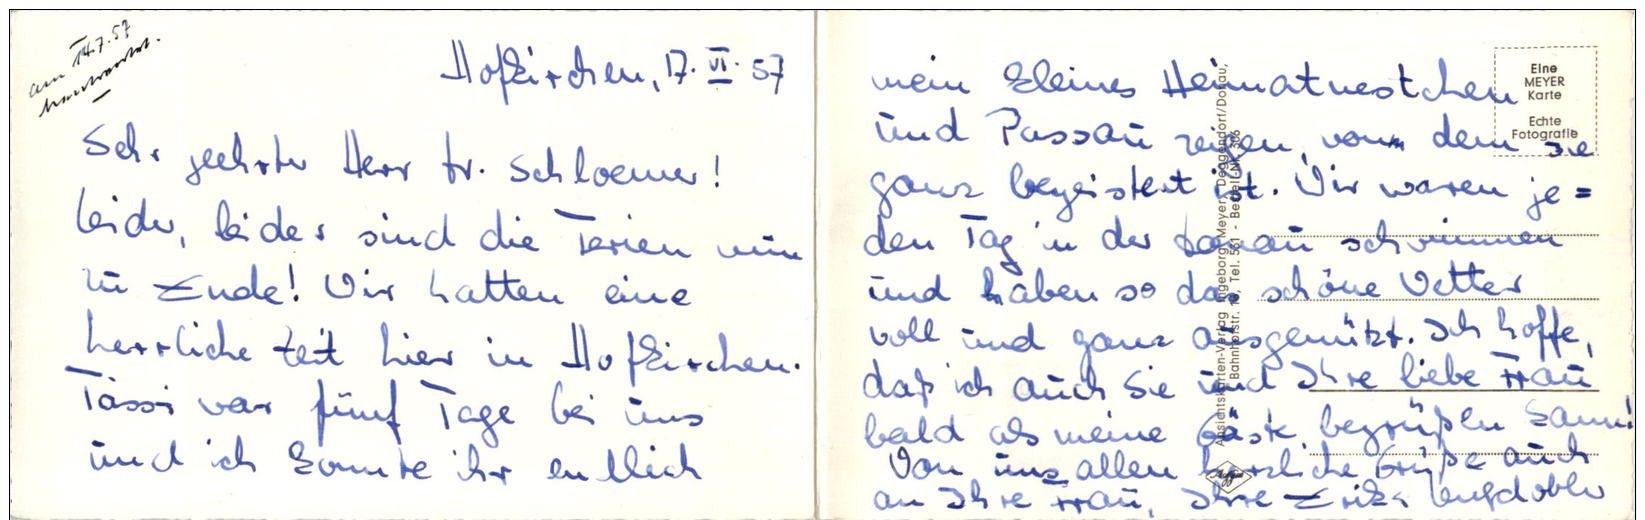 am 14.7.57
beantwortet.
Hofkirchen, 17. VI. 57
Sehr geehrter Herr Dr. Schloemer!
Leider, leider sind die Ferien nun
zu Ende! Wir hatten eine
herrliche Zeit hier in Hofkirchen.
Tassi war fünf Tage bei uns
und ich konnte ihr endlich
mein kleines Heimatnestchen
und Passau zeigen, von dem sie
ganz begeistert ist. Wir waren je=
den Tag in der Donau schwimmen
und haben so das schöne Wetter
voll und ganz ausgenützt. Ich hoffe,
daß ich auch Sie und Ihre liebe Frau
bald als meine Gäste begrüßen kann!
Von uns allen herzliche Grüße auch
an Ihre Frau, Ihre Erika
Eine
MEYER
Karte
Echte
Fotografie
Ansichtskarten-Verlag Ingeborg Meyer, Deggendorf/Donau,
Bahnhofstr. Tel. 551 - Bestell-Nr.
Agfa